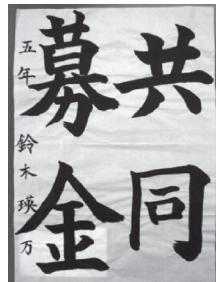 共同
募金
五年 鈴木瑛万